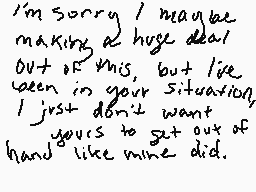 i'm sorry I may be
making a huge deal
out of this, but I've
been in your situation,
I just don't want
yours to get out of
hand like mine did.